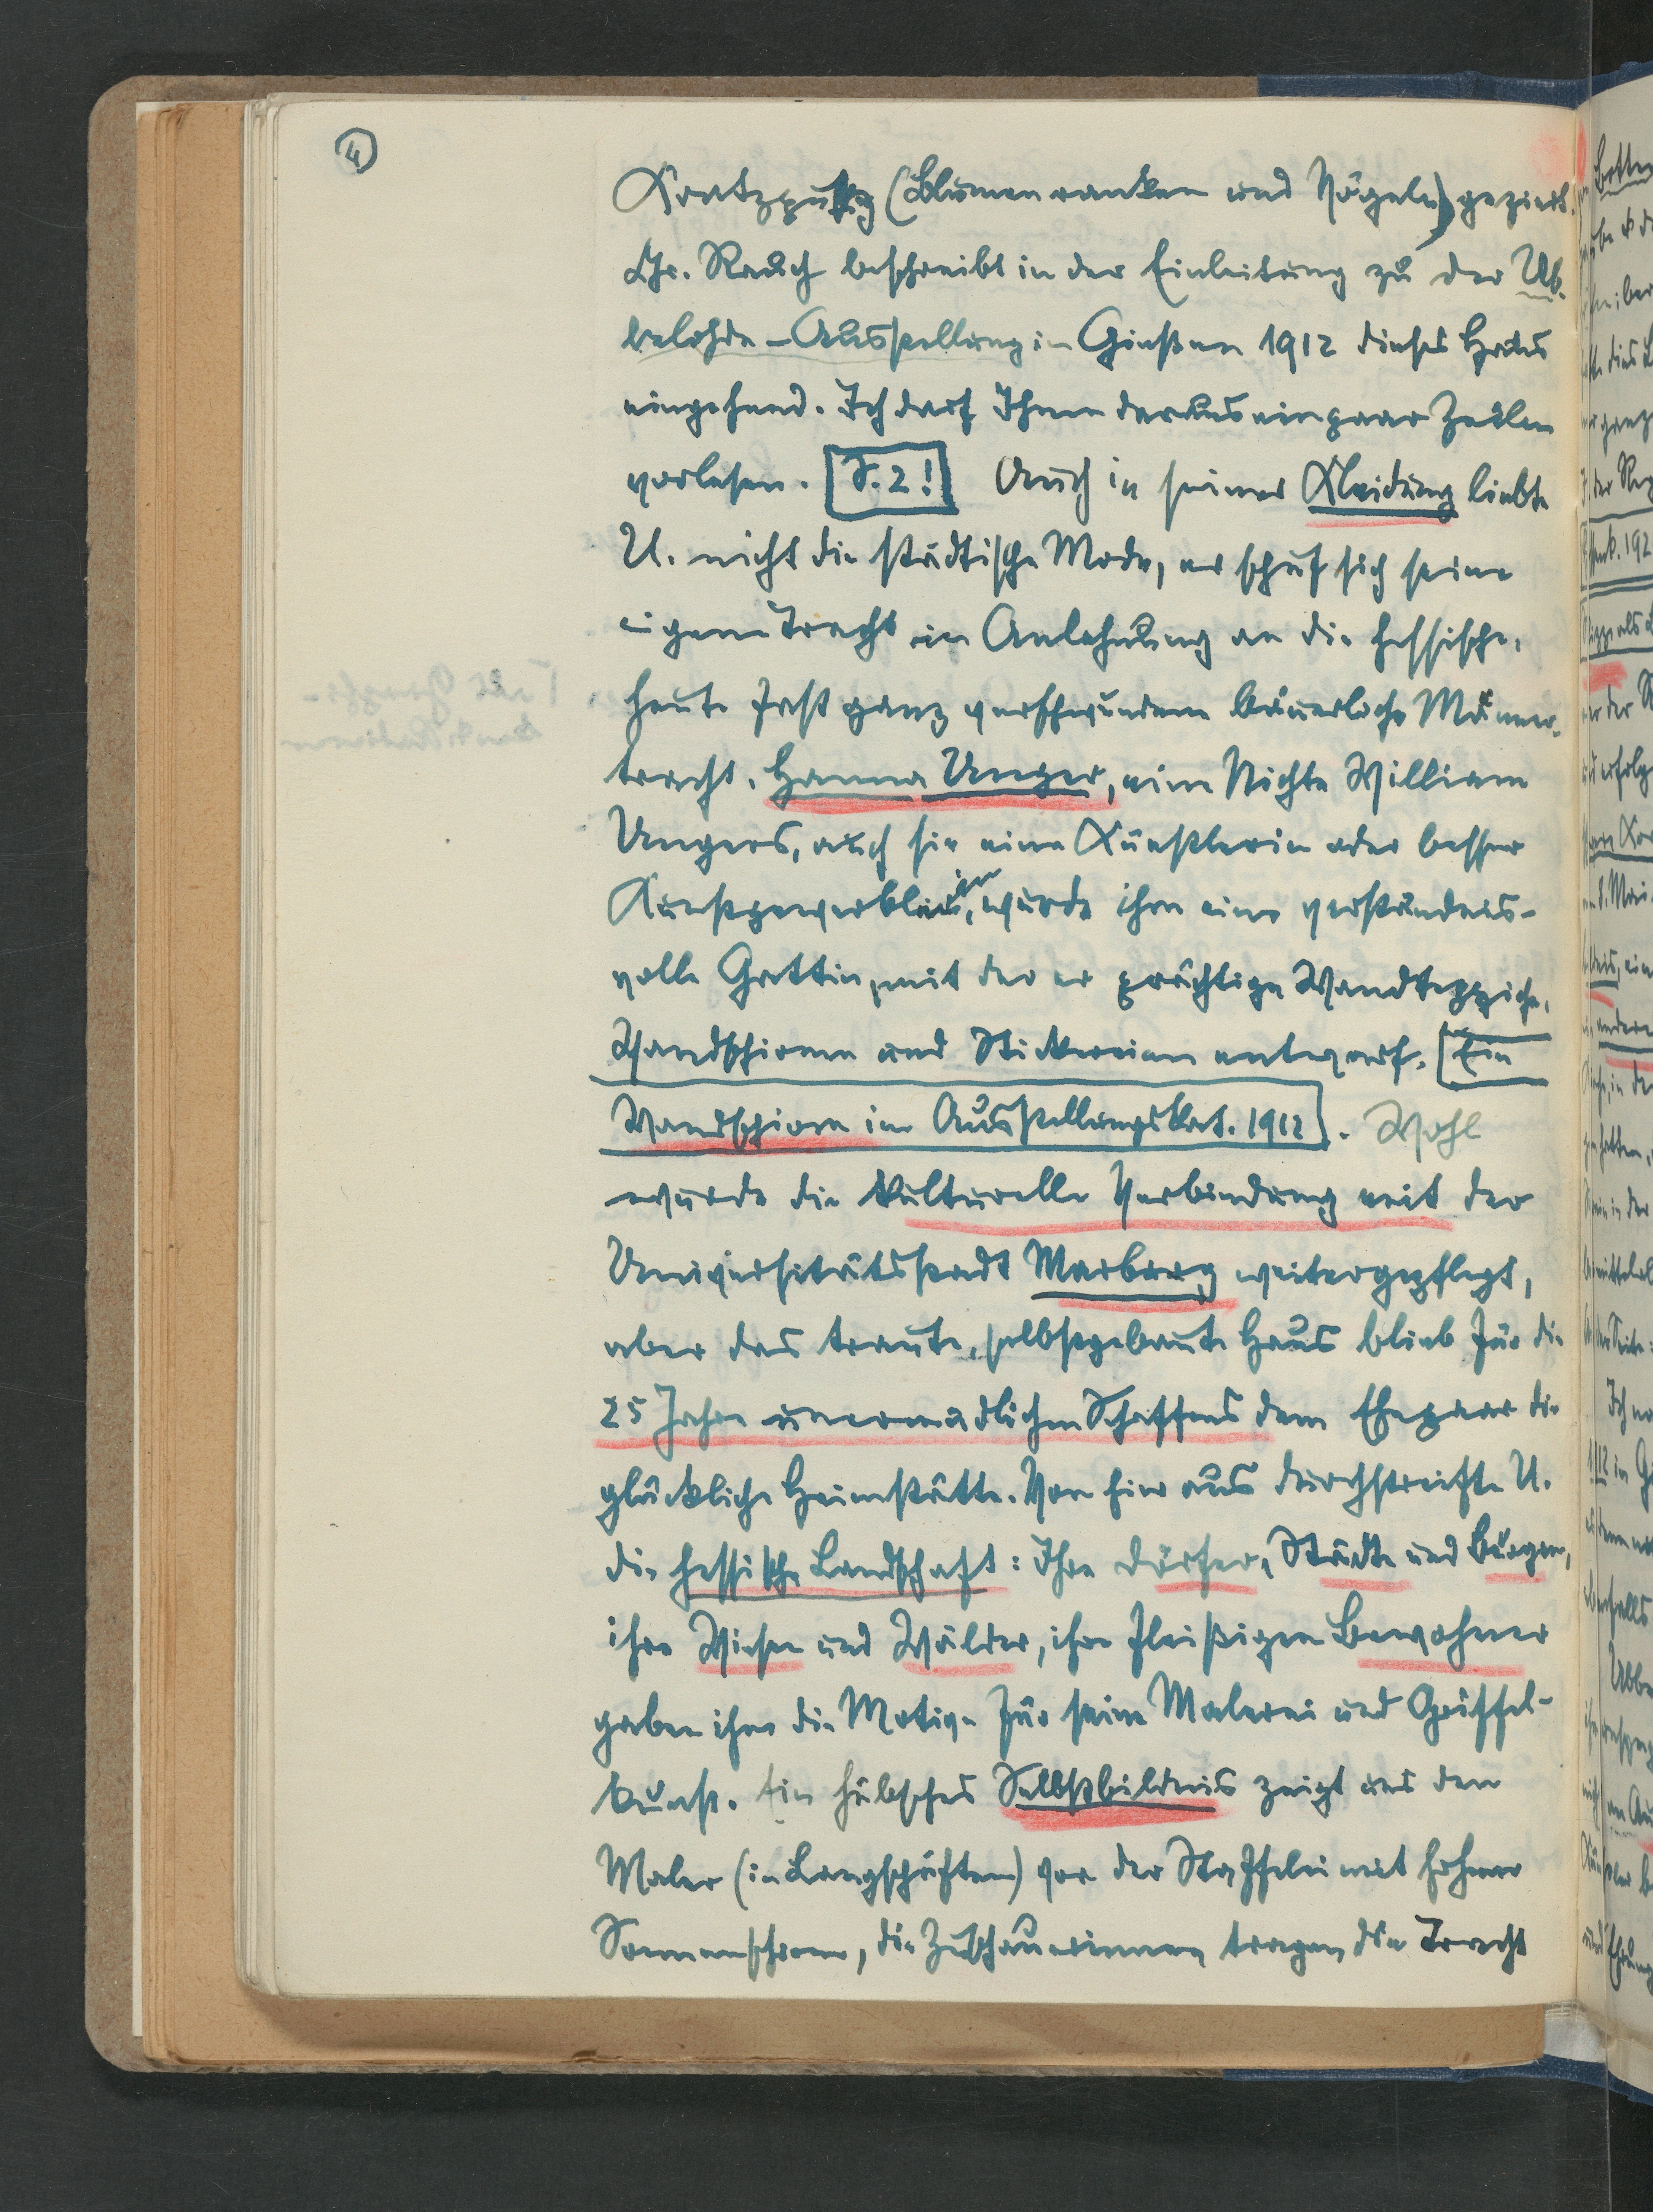 4
Kratzputz (Blumenranken und Vögeln) geziert.
Chr. Rauch beschreibt in der Einleitung zu der Ub-
belohde-Ausstellung in Gießen 1912 dieses Haus
eingehend. Ich darf Ihnen daraus ein paar Zeilen
vorlesen. S. 2! Auch in seiner Kleidung liebte
U. nicht die städtische Mode, er schuf sich seine
eigene Tracht in Anlehnung an die hessische,
heute fast ganz verschwundene bäuerliche Männer-
tracht. Hanna Unger, eine Nichte William
Ungers, auch sie eine Künstlerin oder besser
Kunstgewerblerin, wurde ihm eine verständnis-
volle Gattin, mit der er prächtige Wandteppiche,
Wandschirme und Stickereien entwarf. [Ein
Wandschirm im Ausstellungskat. 1912]. Wohl
wurde die kulturelle Verbindung mit der
Universitätsstadt Marburg weitergepflegt,
aber das traute, selbstgebaute Haus blieb für die
25 Jahre unermüdlichen Schaffens dem Ehepaar die
glückliche Heimstätte. Von hier aus durchstreifte U.
die hessische Landschaft: Ihre Dörfer, Städte und Burgen,
ihre Wiesen und Wälder, ihre fleißigen Bewohner
gaben ihm die Motive für seine Malerei und Griffel-
kunst. Ein hübsches Selbstbildnis zeigt uns den
Maler (in Langschäften) vor der Staffelei mit hohem
Sonnenschirm, die Zuschauerinnen tragen die Tracht